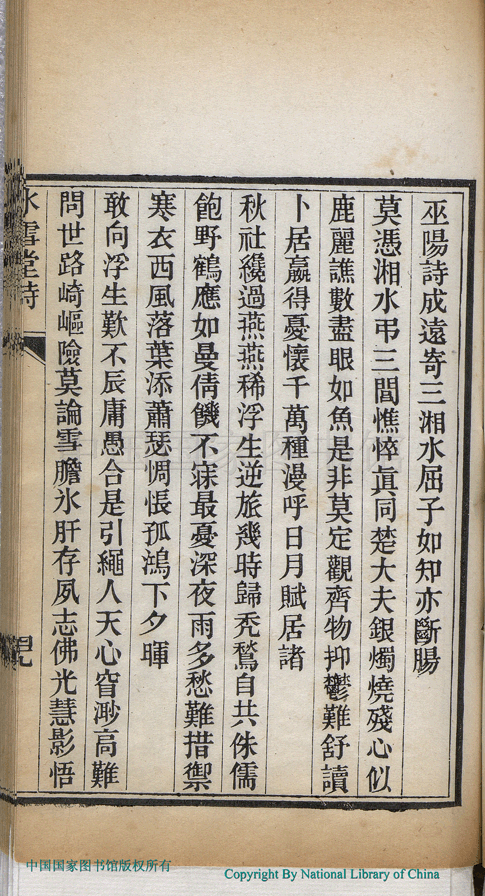 巫陽詩成遠寄三湘水屈子如知亦斷腸
莫憑湘水弔三閭憔悴眞同楚大夫銀燭燒殘心似
鹿麗譙數盡眼如魚是非莫定觀齊物抑鬱難舒讀
卜居贏得憂懷千萬種漫呼日月賦居諸
秋社纔過燕燕稀浮生逆旅幾時歸禿鶖自共侏儒
飽野鶴應如曼倩饑不寐最憂深夜雨多愁難措禦
寒衣西風落葉添蕭瑟惆悵孤鴻下夕暉
敢向浮生歎不辰庸愚合是引繩人天心窅渺高難
問世路崎嶇險莫論雪膽氷肝存夙志佛光慧影悟
冰雪堂詩
中国国家图书馆版权所有
Copyright By National Library of China